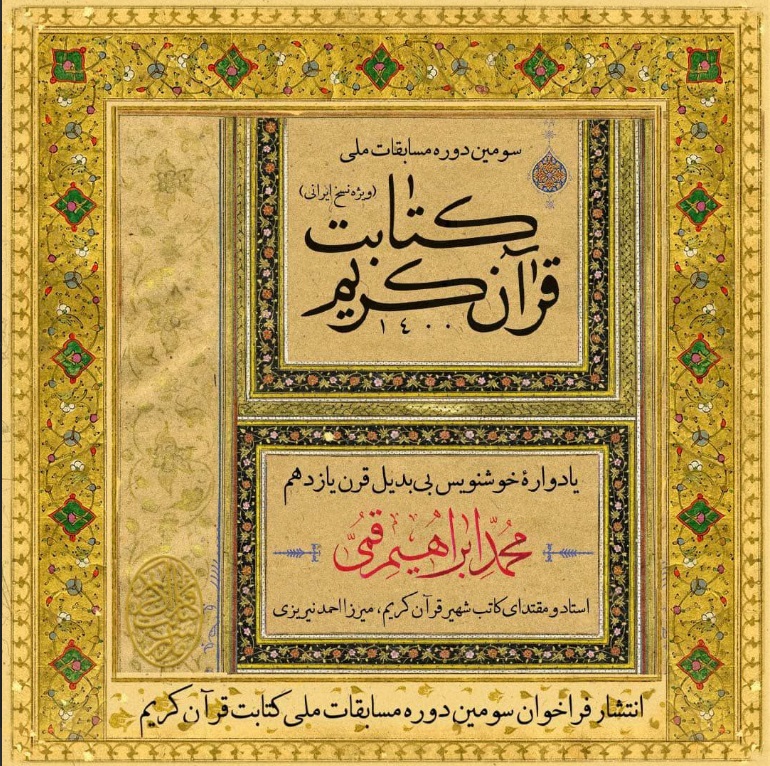 سومین دوره مسابقات ملی
کتابت
(ویژه نسخ ایرانی)
قرآن کریم
۱۴۰۰
یادوارهٔ خوشنویس بی‌بدیل قرن یازدهم
محمّد ابراهیم قمّی
استاد و مقتدای کاتب شهیر قرآن کریم، میرزا احمد نیریزی
انتشار فراخوان سومین دوره مسابقات ملی کتابت قرآن کریم